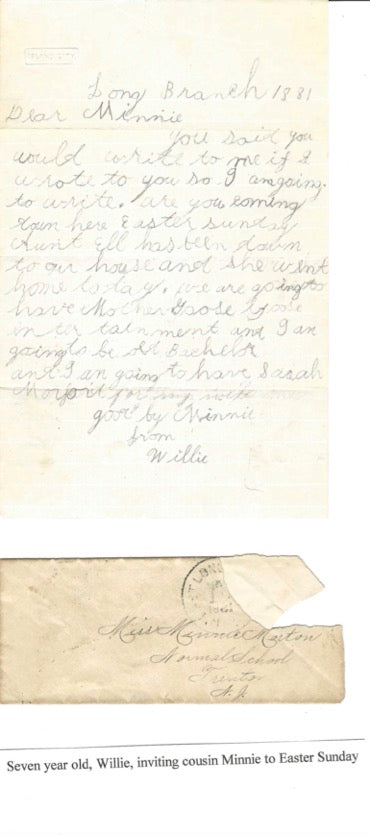 Long Branch 1881
Dear Minnie
you said you
would write to me if I
wrote to you so I am going.
to write. are you coming
down here Easter sunday
Aunt Ell has been down
to our house and she went
home today. we are going to
have Mother Goose Goose
inter tainment and I an
going to be old Bachelor
and I an going to have Sarah
for my wife
good by Minnie
from
Willie
Miss Minnie Morton
Normal School
Trenton
N. J.
Seven year old, Willie, inviting cousin Minnie to Easter Sunday